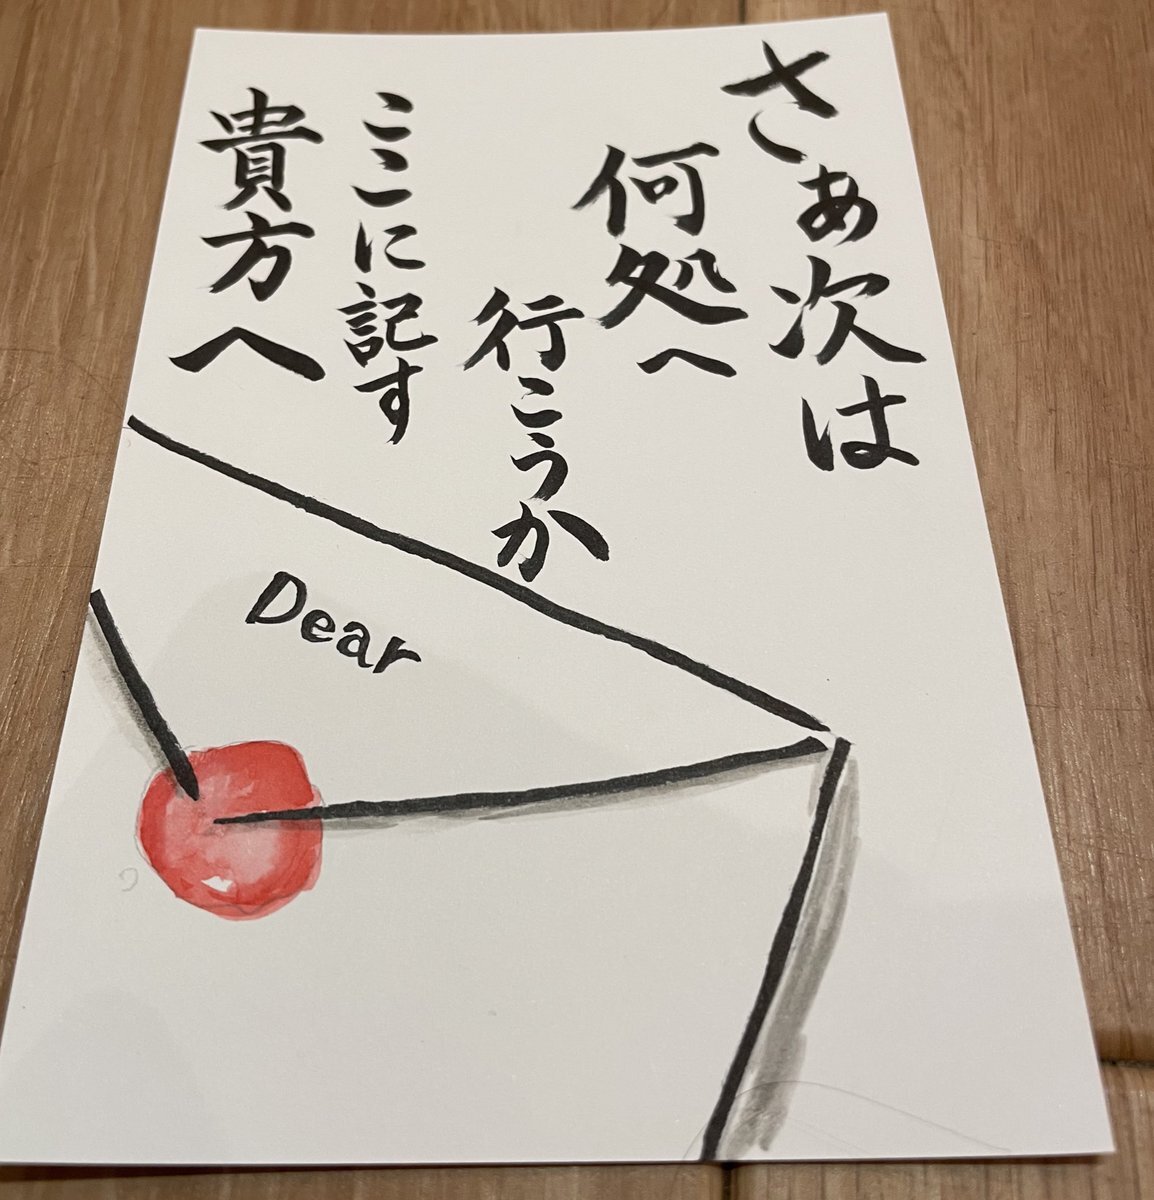 さぁ次は
何処へ
行こうか
ここに記す
貴方へ
Dear